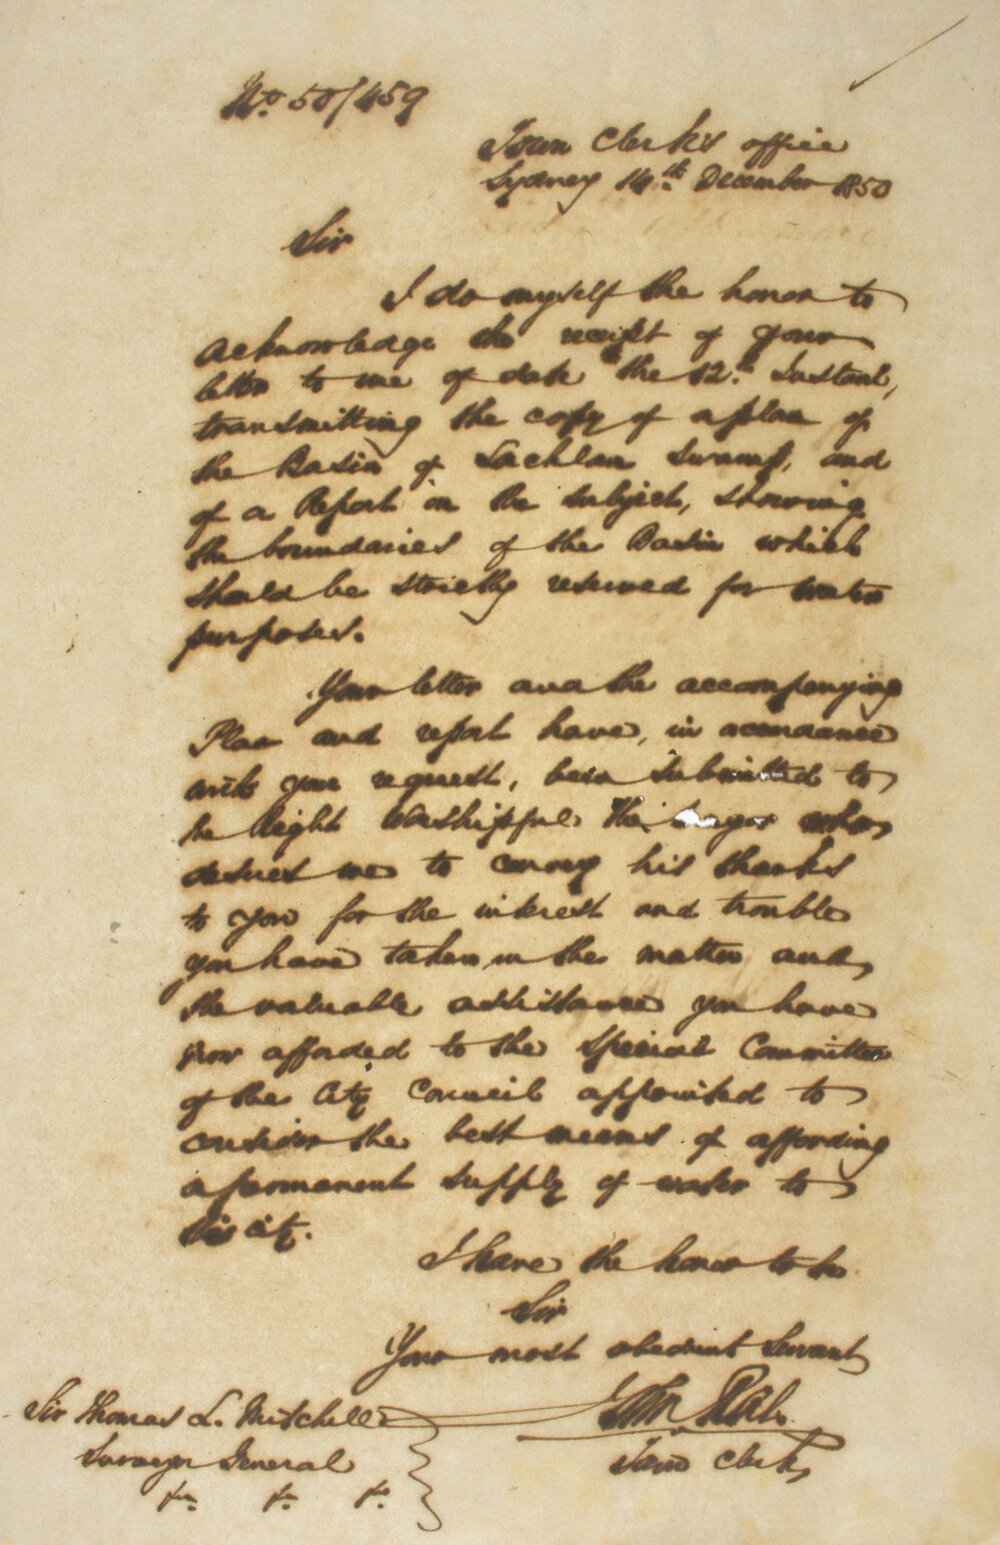 No. 50/459
Town Clerk's office
Sydney 14th December 1850
Sir
I do myself the honor to
acknowledge the receipt of your
letter to me of date the 12th Instant,
transmitting the copy of a plan of
the Basin of Lachlan Swamp, and
of a Report on the subject, showing
the boundaries of the Basin which
should be strictly reserved for water
purposes.
Your letter and the accompanying
Plan and report have, in accordance
with your request, been submitted to
the Right Worshipful the Mayor who
desires me to convey his thanks
to you for the interest and trouble
you have taken in the matter and
the valuable assistance you have
now afforded to the Special Committee
of the City Council appointed to
consider the best means of affording
a permanent supply of water to
this city.
I have the honor to be
Sir
Your most obedient Servant
Sir Thomas L. Mitchell
Surveyor General
Town Clerk